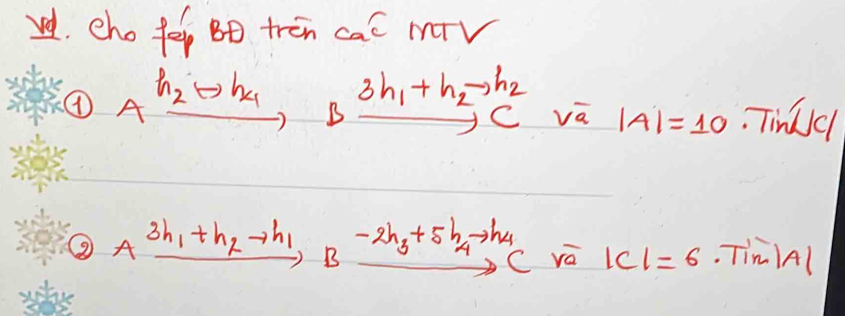 Vd. Cho fép BĐ trên các MTV
① A h₂ ↔ h₄ → B 3h₁ + h₂ → h₂ → C và |A| = 10. Tính |C|
② A 3h₁ + h₂ → h₁ → B -2h₃ + 5h₄ → h₄ → C và |C| = 6. Tìm |A|